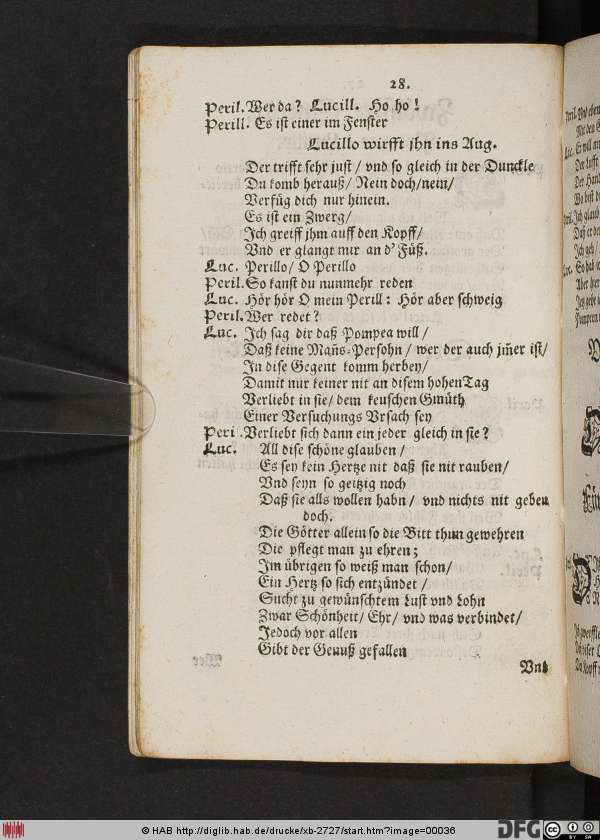 28.
Peril. Wer da? Lucill. Ho ho!
Perill. Es ist einer im Fenster
Lucillo wirfft jhn ins Aug.
Der trifft sehr just / vnd so gleich in der Dunckle
Du komb herauß / Nein doch / nein /
Verfüg dich nur hinein.
Es ist ein Zwerg /
Ich greiff jhm auff den Kopff /
Vnd er glangt mir an d' Füß.
Luc. Perillo / O Perillo
Peril. So kanst du nunmehr reden
Luc. Hör hör O mein Perill: Hör aber schweig
Peril. Wer redet?
Luc. Ich sag dir daß Pompea will /
Daß keine Mañs-Persohn / wer der auch jm̃er ist /
In dise Gegent komm herbey /
Damit nur keiner nit an disem hohen Tag
Verliebt in sie / dem keuschen Gmüth
Einer Versuchungs Vrsach sey
Peri. Verliebt sich dann ein jeder gleich in sie?
Luc. All dise schöne glauben /
Es sey kein Hertze nit daß sie nit rauben /
Vnd seyn so geitzig noch
Daß sie alls wollen habn / vnd nichts nit geben
doch.
Die Götter allein so die Bitt thun gewehren
Die pflegt man zu ehren;
Im übrigen so weiß man schon /
Ein Hertz so sich entzündet /
Sucht zu gewünschtem Lust vnd Lohn
Zwar Schönheit / Ehr / vnd was verbindet /
Jedoch vor allen
Gibt der Genuß gefallen
Vnd
© HAB http://diglib.hab.de/drucke/xb-2727/start.htm?image=00036
DFG